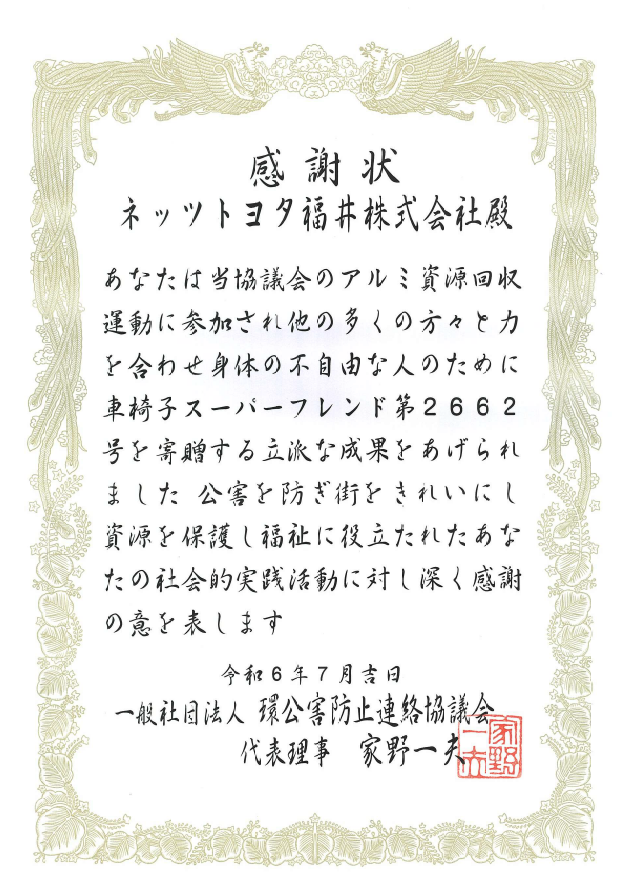 感謝状
ネッツトヨタ福井株式会社殿
あなたは当協議会のアルミ資源回収
運動に参加され他の多くの方々と力
を合わせ身体の不自由な人のために
車椅子スーパーフレンド第2662
号を寄贈する立派な成果をあげられ
ました 公害を防ぎ街をきれいにし
資源を保護し福祉に役立たれたあな
たの社会的実践活動に対し深く感謝
の意を表します
令和6年7月吉日
一般社団法人 環公害防止連絡協議会
代表理事 家野一夫
家野一夫